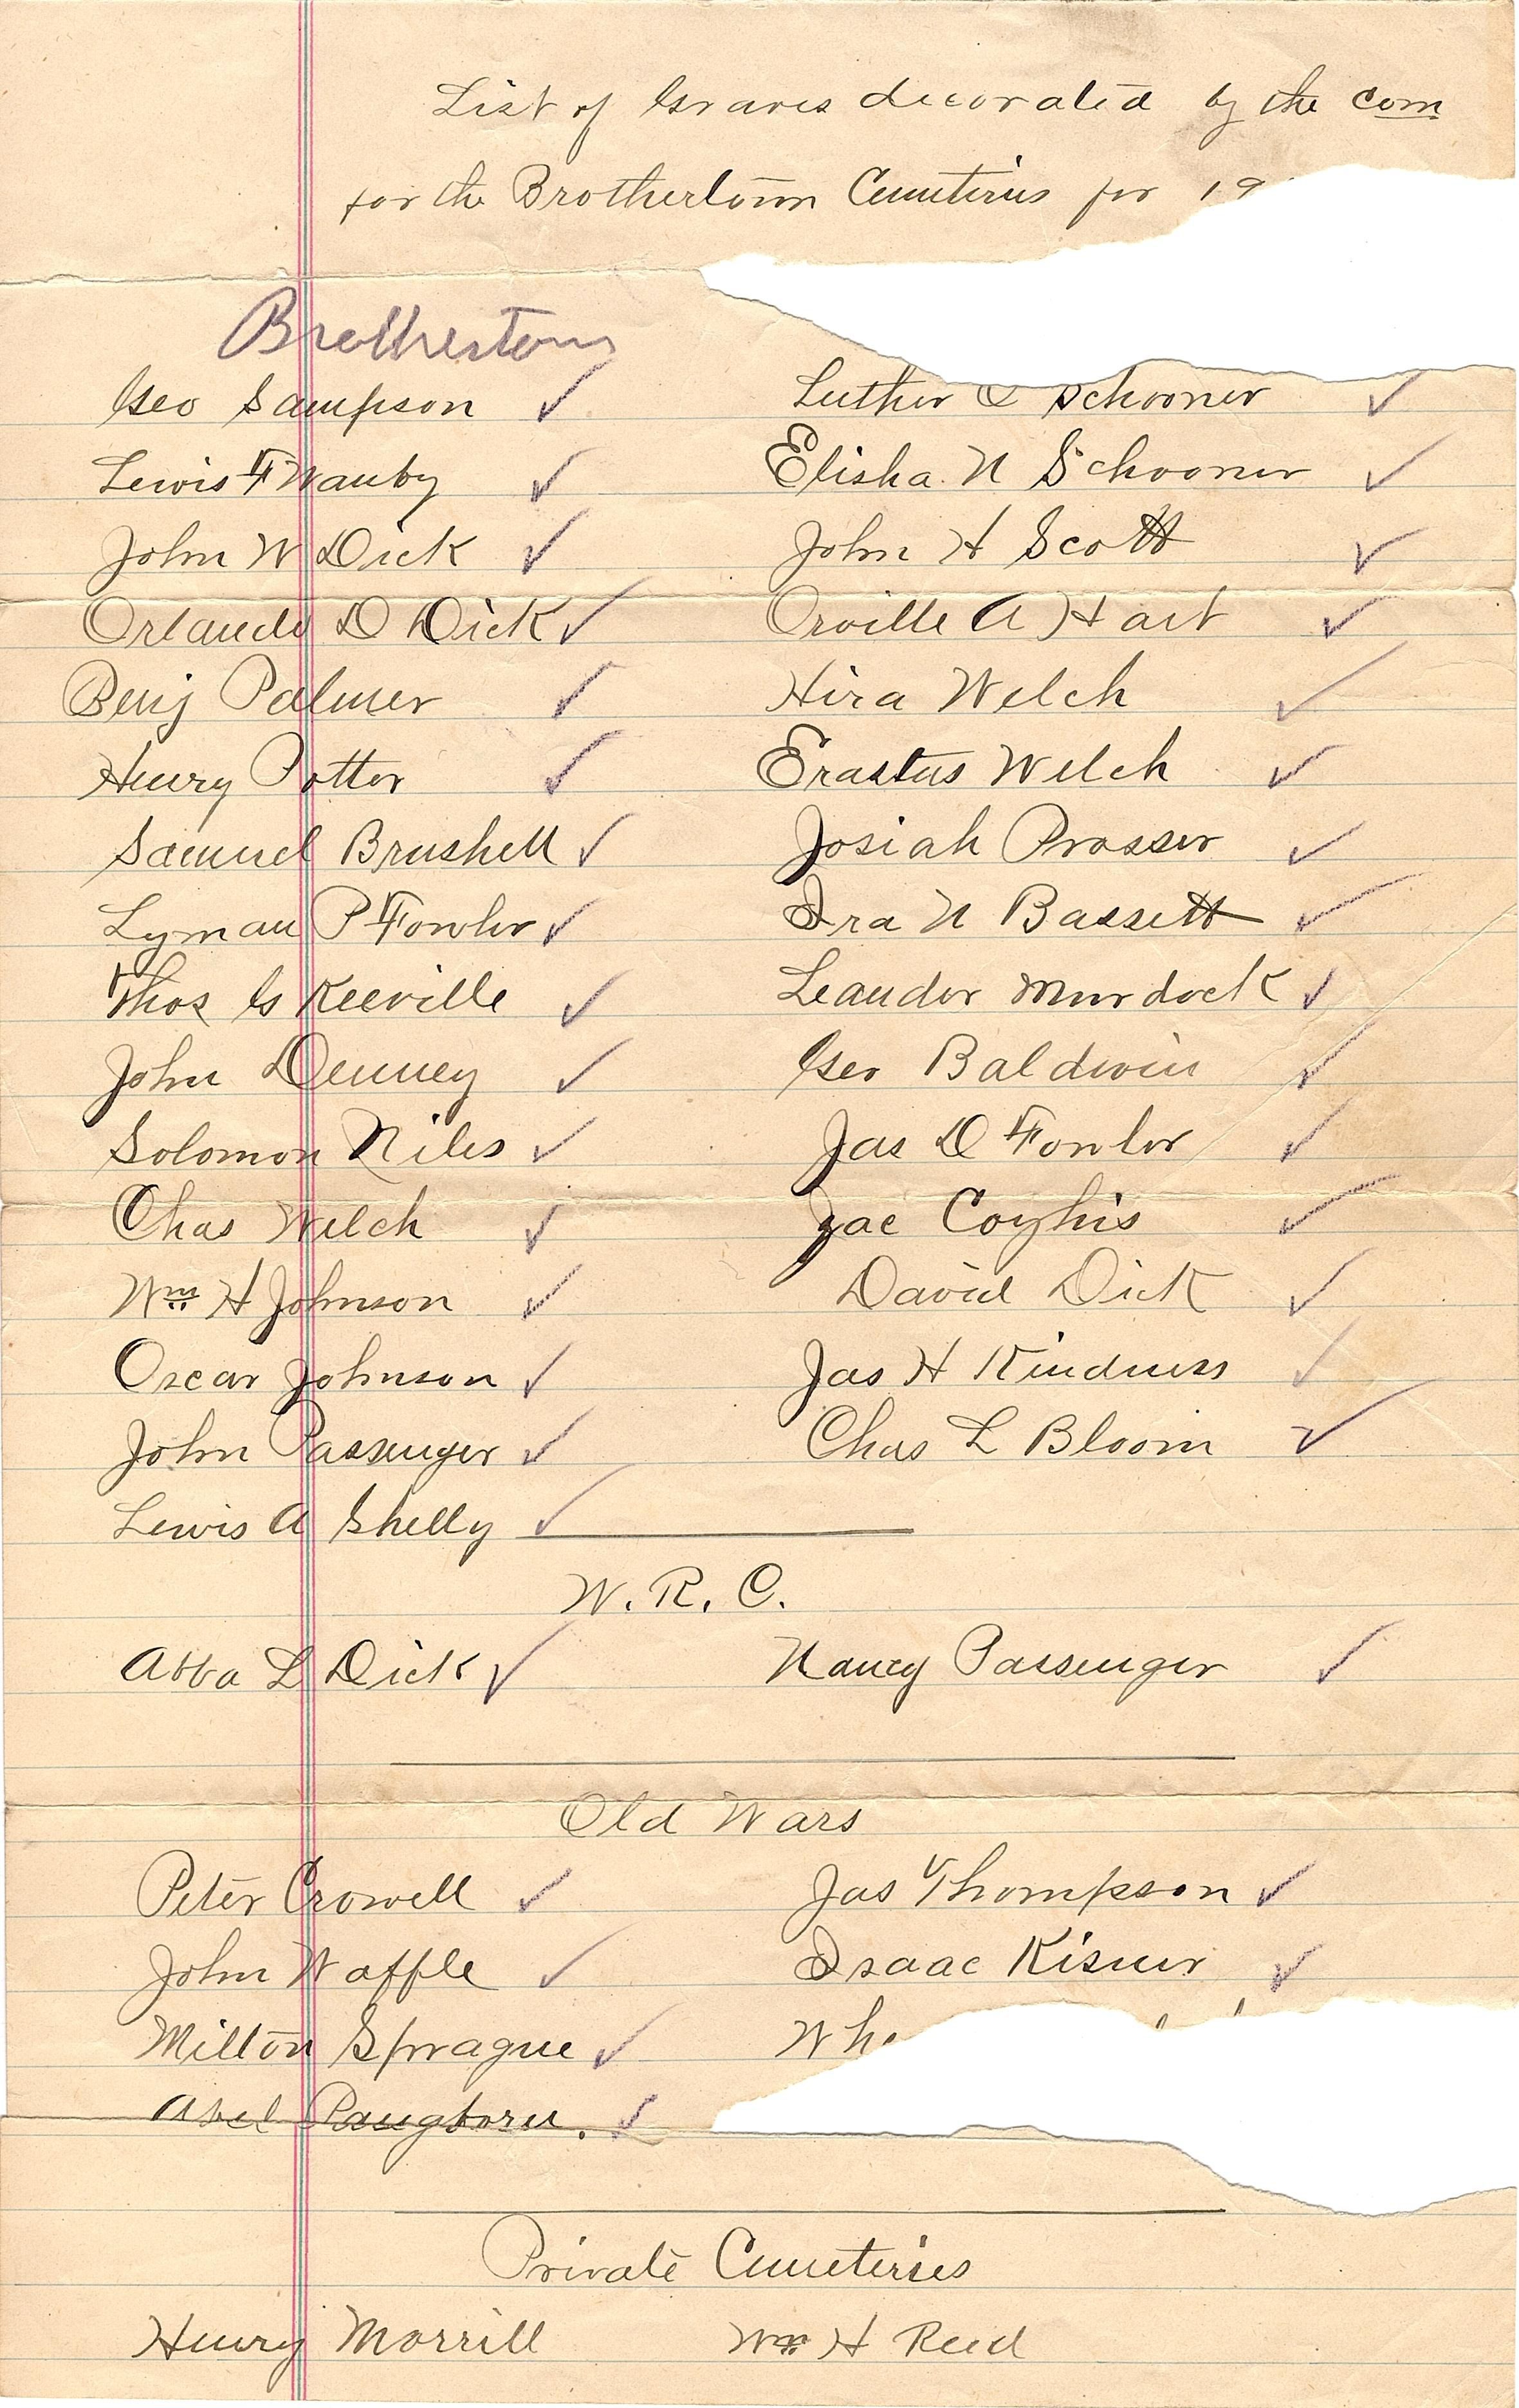 List of Graves decorated by the com
for the Brothertown Cemeteries for 19
Brothertown
Geo Sampson ✓ Luther Schooner ✓
Lewis F Wauby ✓ Elisha N Schooner ✓
John W Dick ✓ John H Scott ✓
Orlando D Dick ✓ Orville A Hart ✓
Benj Palmer ✓ Hira Welch ✓
Henry Potter ✓ Erastus Welch ✓
Samuel Brushell ✓ Josiah Prosser ✓
Lyman P Fowler ✓ Ira N Bassett ✓
Thos G Keeville ✓ Leander Murdock ✓
John Denney ✓ Geo Baldwin ✓
Solomon Niles ✓ Jas D Fowler ✓
Chas Welch ✓ Jac Coyhis ✓
Wm H Johnson ✓ David Dick ✓
Oscar Johnson ✓ Jas H Kindness ✓
John Passenger ✓ Chas L Bloom ✓
Lewis A Shelly ✓
W. R. C.
Abba L Dick ✓ Nancy Passenger ✓
Old Wars
Peter Crowell ✓ Jas Thompson ✓
John Waffle ✓ Isaac Kisner ✓
Milton Sprague ✓
Abel Pangborn. ✓
Private Cemeteries
Henry Morrill Wm H Reed